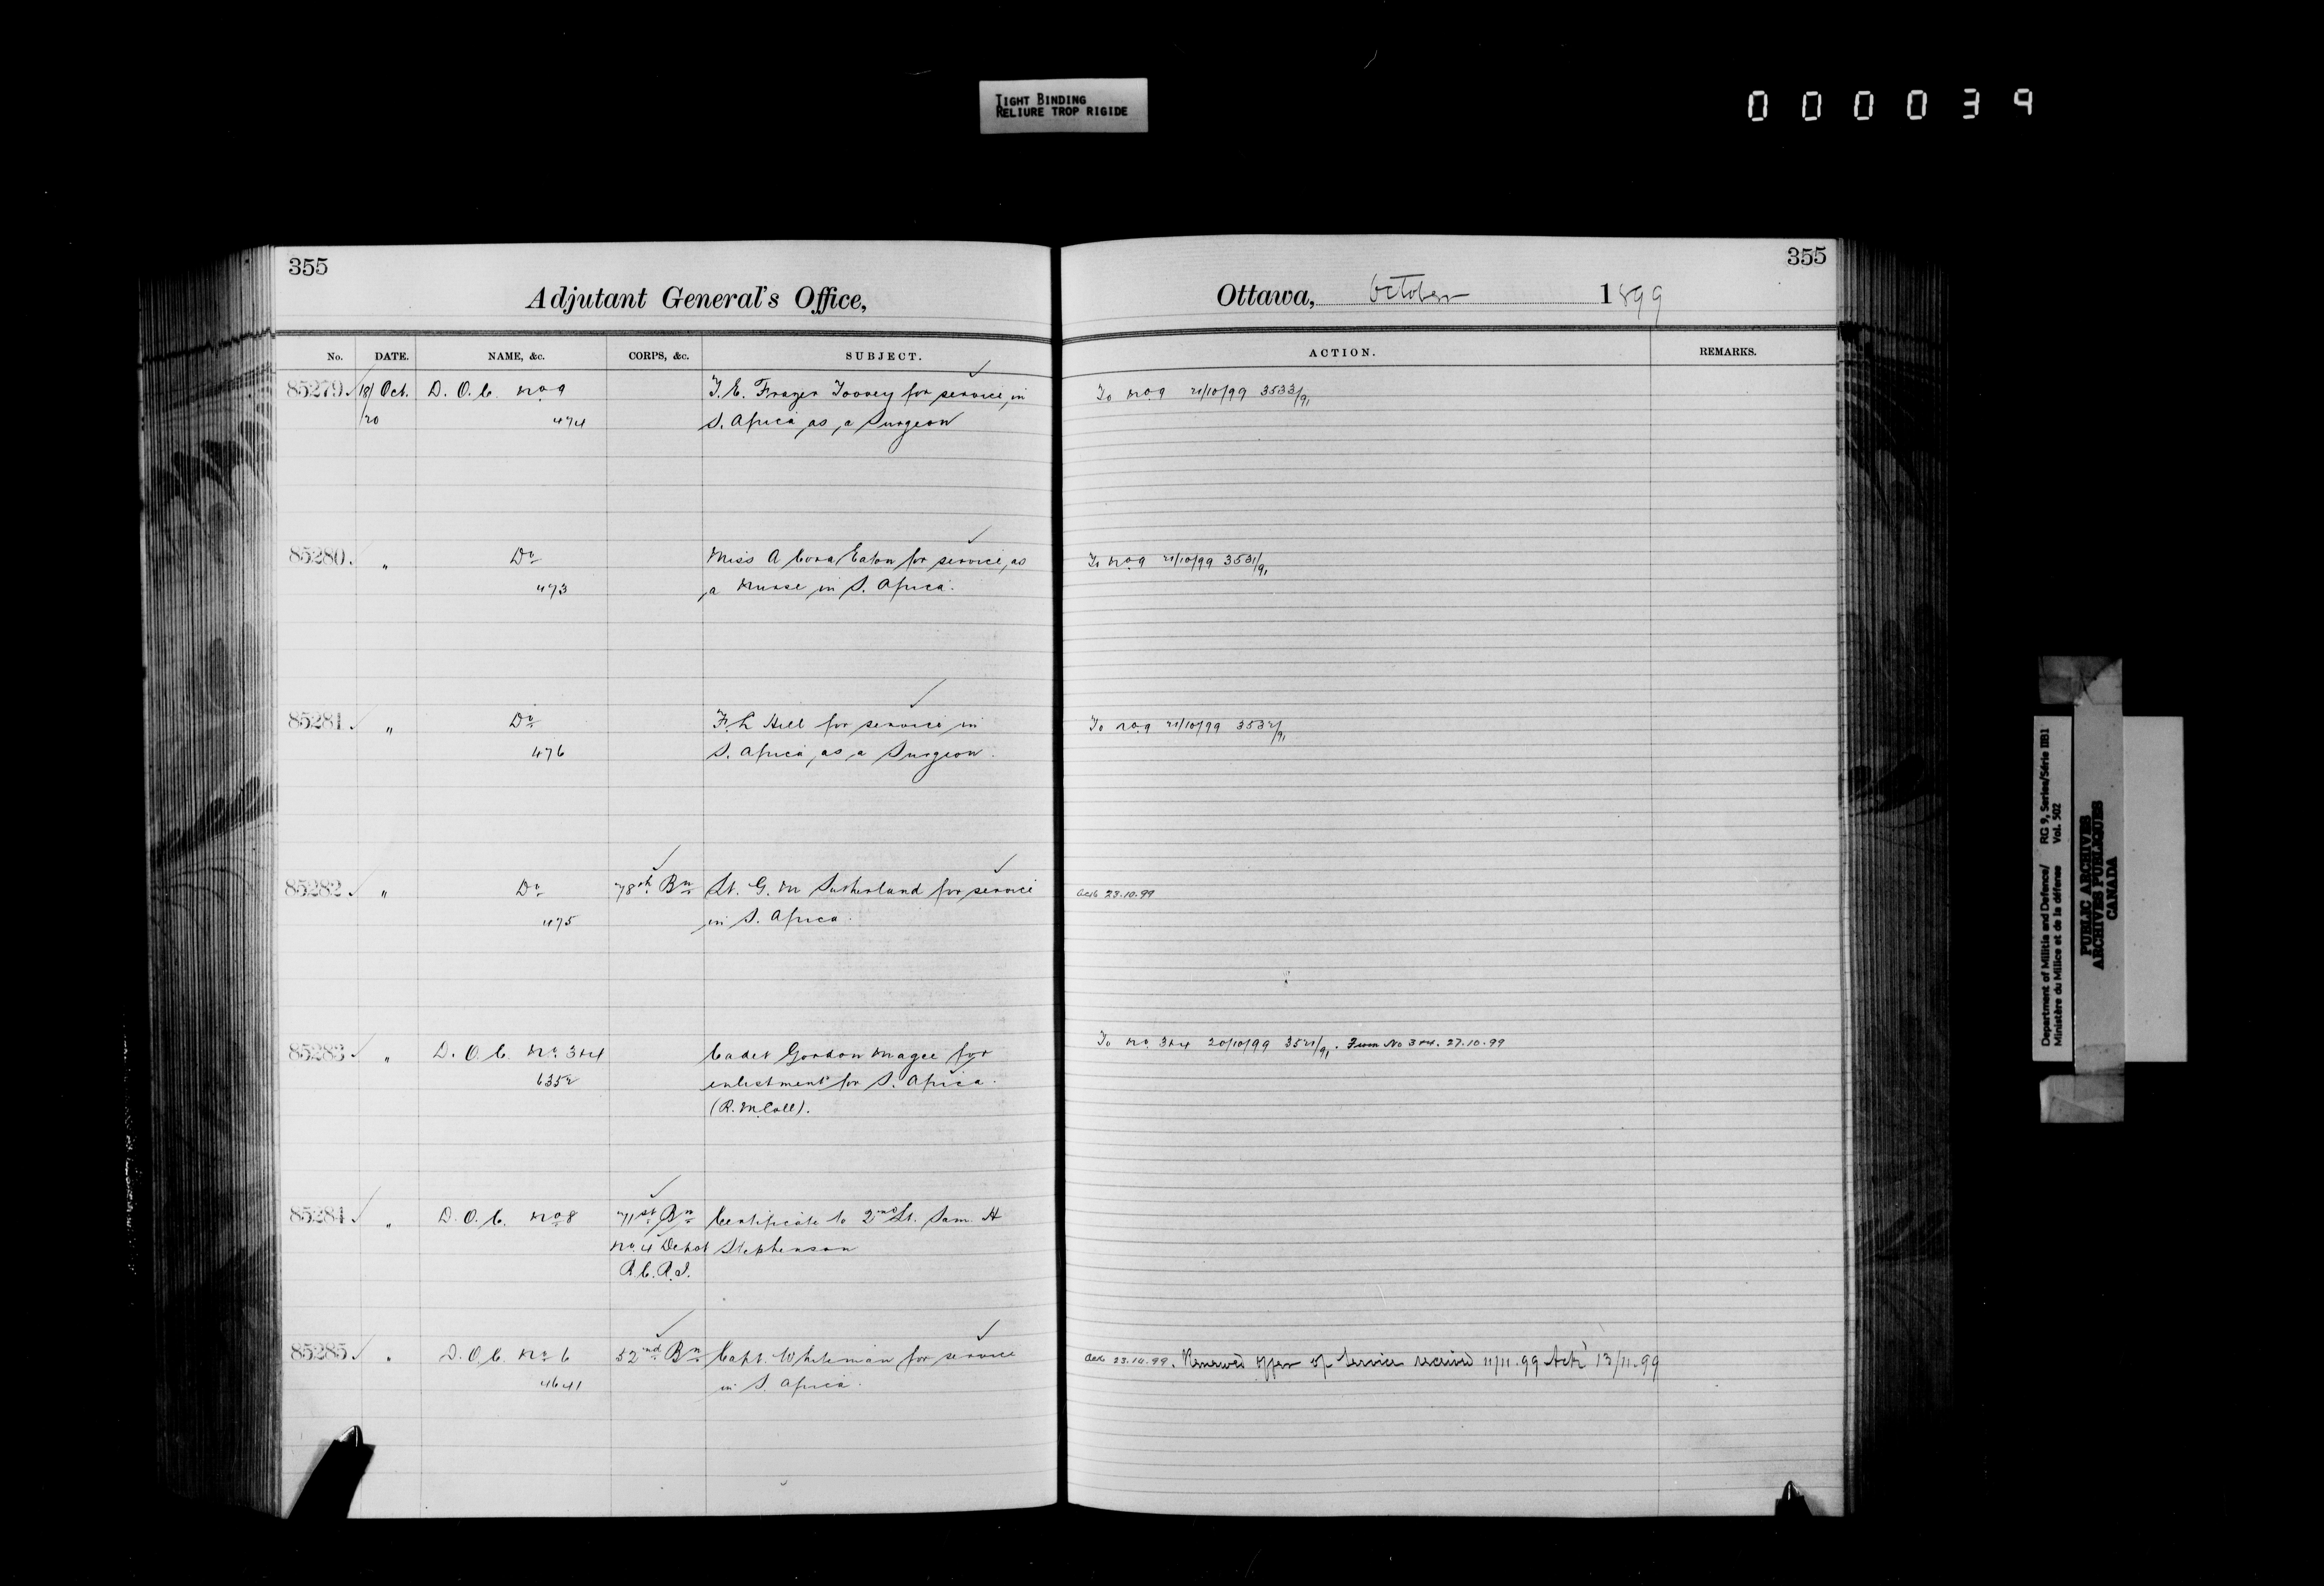 TIGHT BINDING
RELIURE TROP RIGIDE
000039
355
Adjutant General's Office,
No. DATE. NAME, &c. CORPS, &c. SUBJECT.
85279 18/ Oct. D. O. C. No 9 T. E. Frazer Toovey for service in
/20 474 S. Africa as a Surgeon
85280 " Do Miss A Cora Eaton for service as
473 a Nurse in S. Africa.
85281 " Do F. L Hill for service in
476 S. Africa as a Surgeon.
85282 " Do 78th Bn Lt. G. M Sutherland for service
475 in S. Africa.
85283 " D. O. C. No 3&4 Cadet Gordon Magee for
6352 enlistment for S. Africa.
(R. M. Coll).
85284 " D. O. C. No 8 71st Bn Certificate to 2nd Lt. Sam. H
No. 4 Depot Stephenson
R. C. R. I.
85285 " D. O. C. No 6 52nd Bn Capt. Whiteman for service
4641 in S. Africa.
355
Ottawa, October 1899
ACTION. REMARKS.
To No 9 21/10/99 3533/91
To No 9 21/10/99 3531/91
To No 9 21/10/99 3532/91
Ack 23.10.99
To No 3&4 20/10/99 3521/91. From No 3&4. 27.10.99
Ack 23.10.99. Renewed offer of Service received 11/11.99 Ackd 13/11.99
Department of Militia and Defence/ RG 9, Series/Série IIB1
Ministère du Milice et de la défense Vol. 502
PUBLIC ARCHIVES
ARCHIVES PUBLIQUES
CANADA